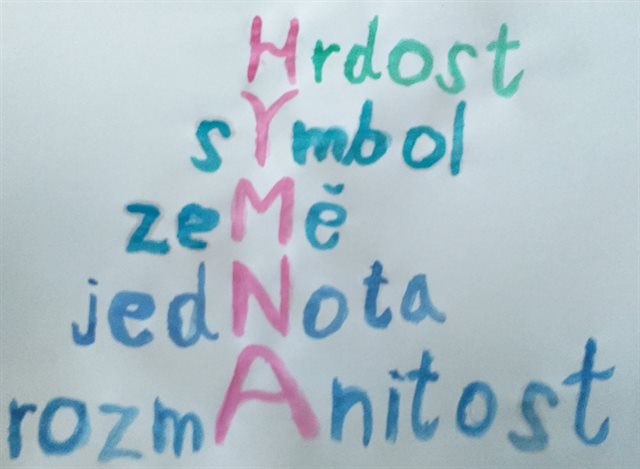 Hrdost
sYmbol
zeMě
jedNota
rozmAnitost